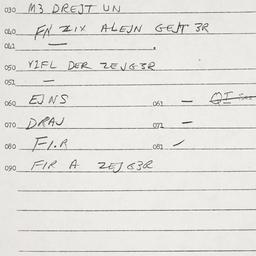 030 M3 DREJT UN
040 FN ZIX ALEJN GEJT 3R
041
050 VIFL DER ZEJG3R
051 —
060 EJNS 061 — QI
070 DRAJ 071 —
080 FI.R 081
090 FIR A ZEJG3R